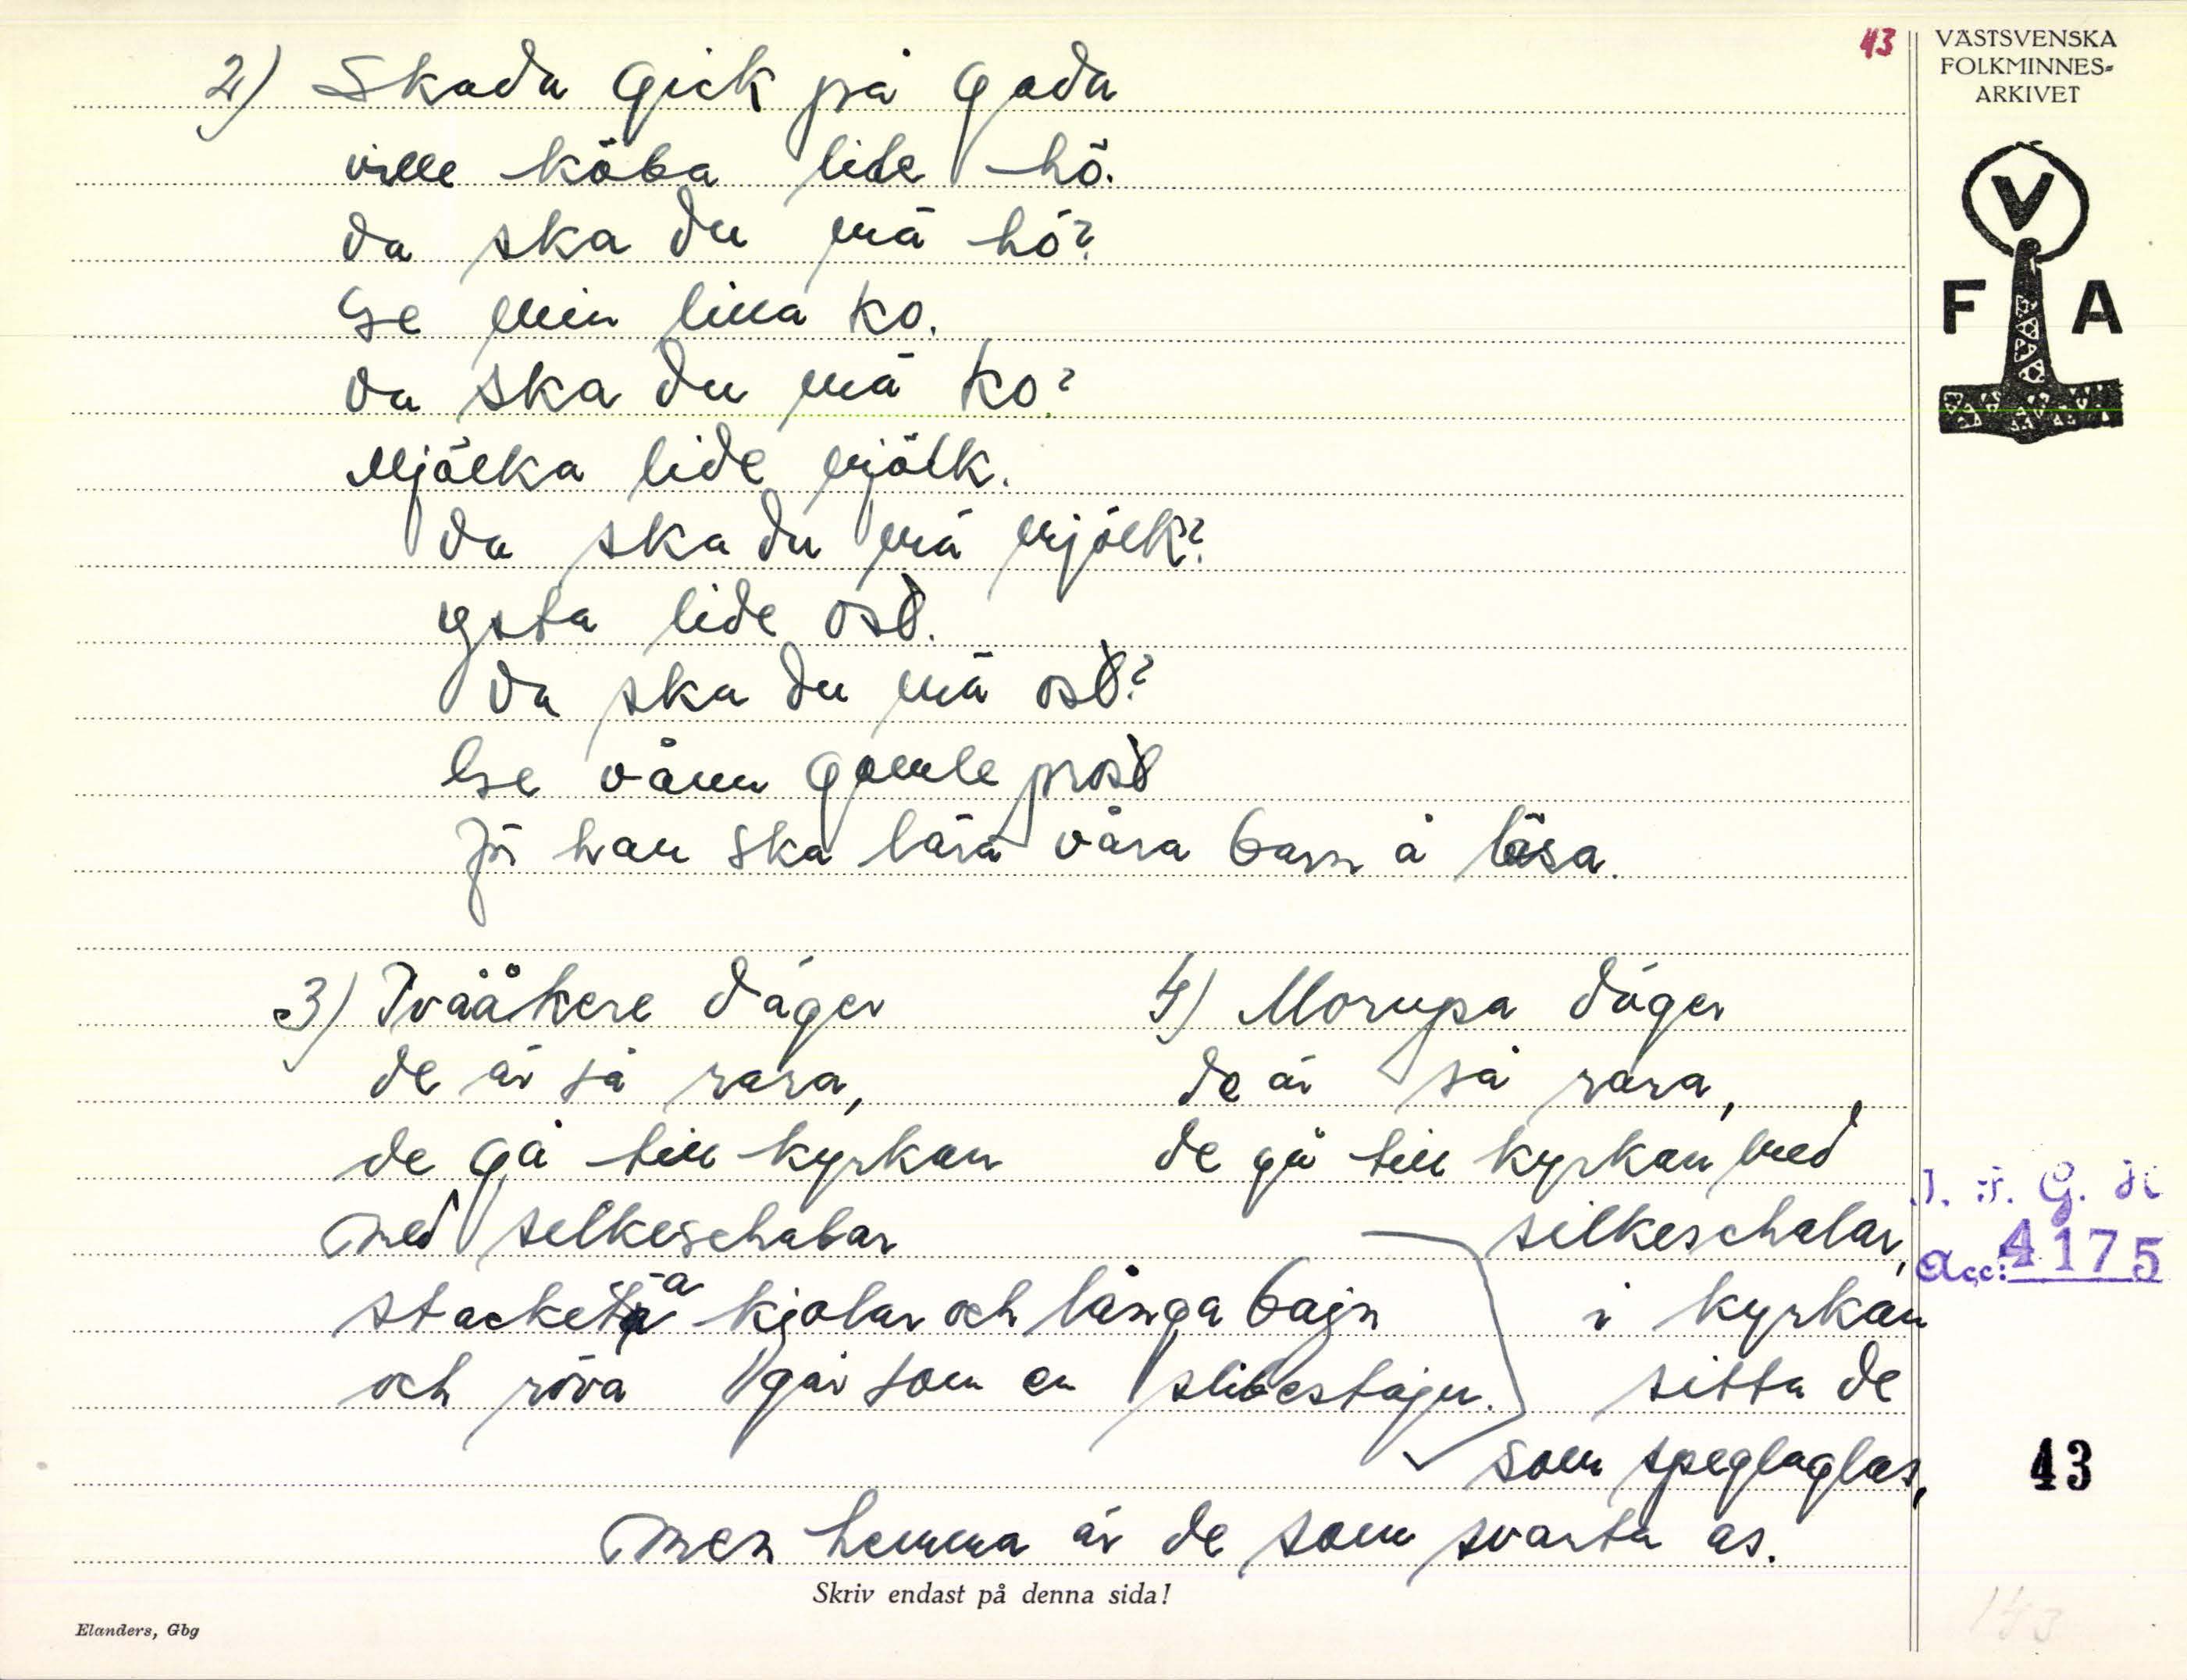 43
VÄSTSVENSKA
FOLKMINNES-
ARKIVET
V
F A
2) Skada gick på gada
ville köba lide hö.
da ska du mä hö?
Ge min lilla ko.
da ska du mä ko?
Mjölka lide mjölk.
da ska du mä mjölk?
ysta lide ost.
da ska du mä ost?
Ge vånn gamle prost
för han ska lära våra barn å läsa.
3) Tvååkere däger
de är så rara,
de gå till kyrkan
med selkeschalar
stacketa kjolar och långa bajn
och röva går som en slibestajn.
4) Morupa däger
de är så rara,
de gå till kyrkan med
silkeschalar,
i kyrkan
sitta de
som speglaglas,
men hemma är de som svarta as.
Acc: 4175
43
Skriv endast på denna sida!
Elanders, Gbg